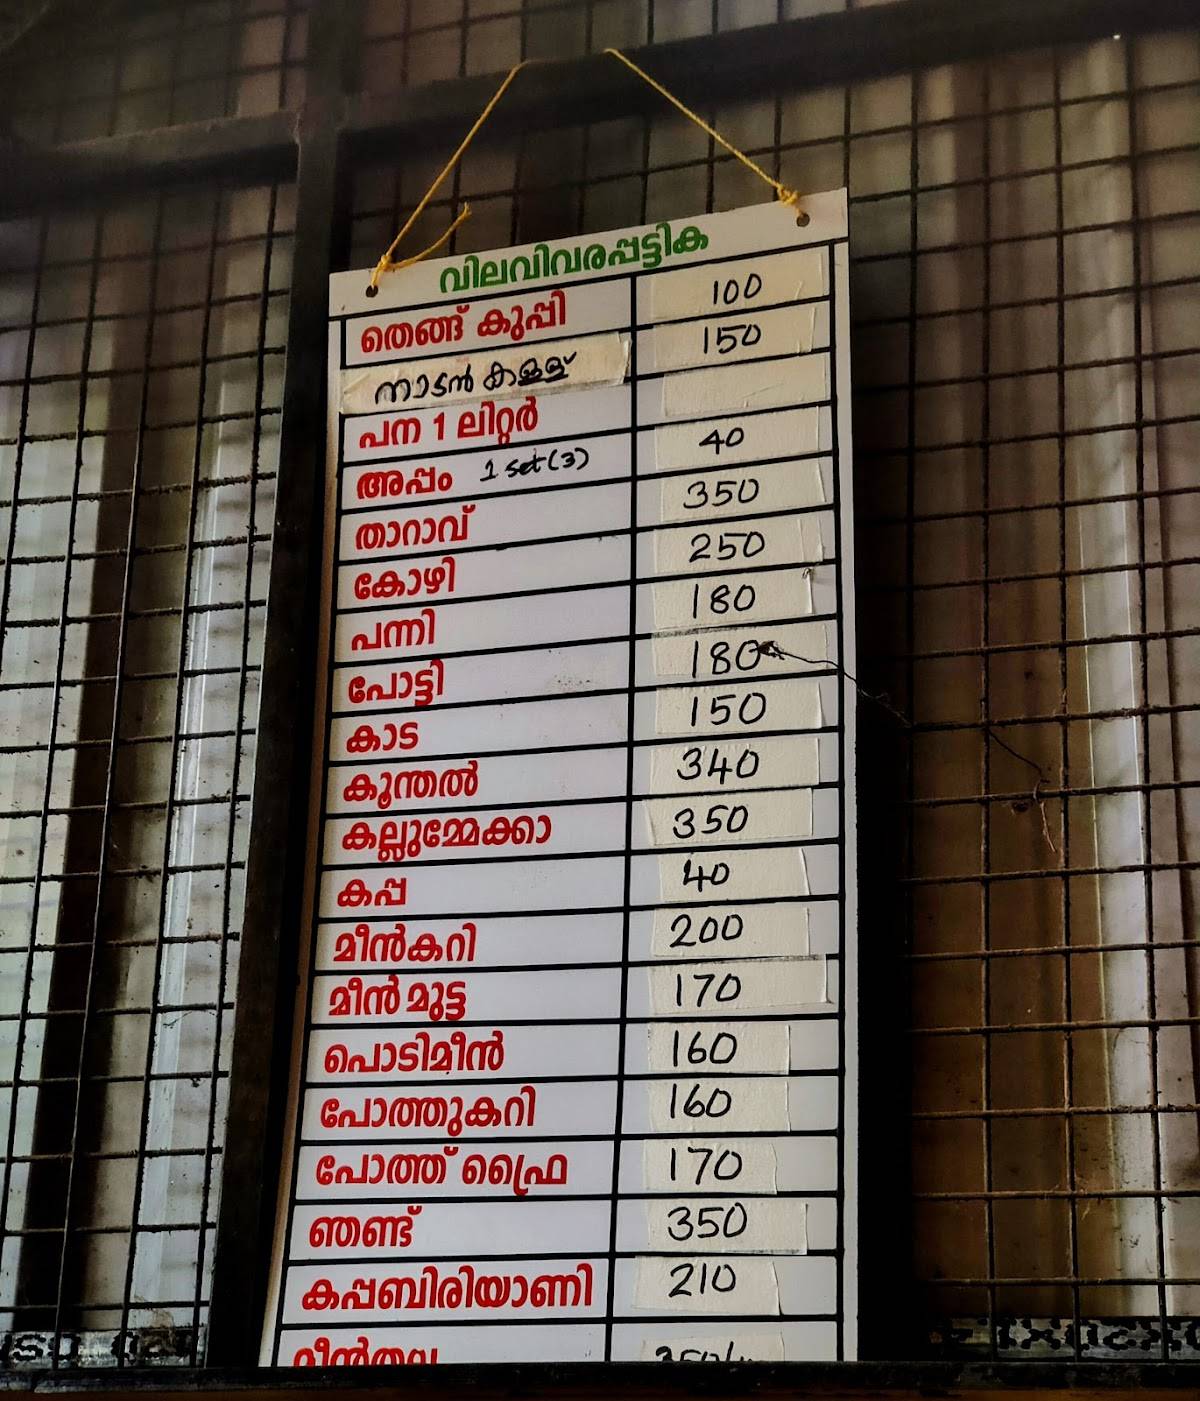 വിലവിവരപ്പട്ടിക
തെങ്ങ് കുപ്പി 100
നാടൻ കള്ള് 150
പന 1 ലിറ്റർ
അപ്പം 1 set (3) 40
താറാവ് 350
കോഴി 250
പന്നി 180
പോട്ടി 180
കാട 150
കൂന്തൽ 340
കല്ലുമ്മേക്കാ 350
കപ്പ 40
മീൻകറി 200
മീൻ മുട്ട 170
പൊടിമീൻ 160
പോത്തുകറി 160
പോത്ത് ഫ്രൈ 170
ഞണ്ട് 350
കപ്പബിരിയാണി 210
മീൻതല